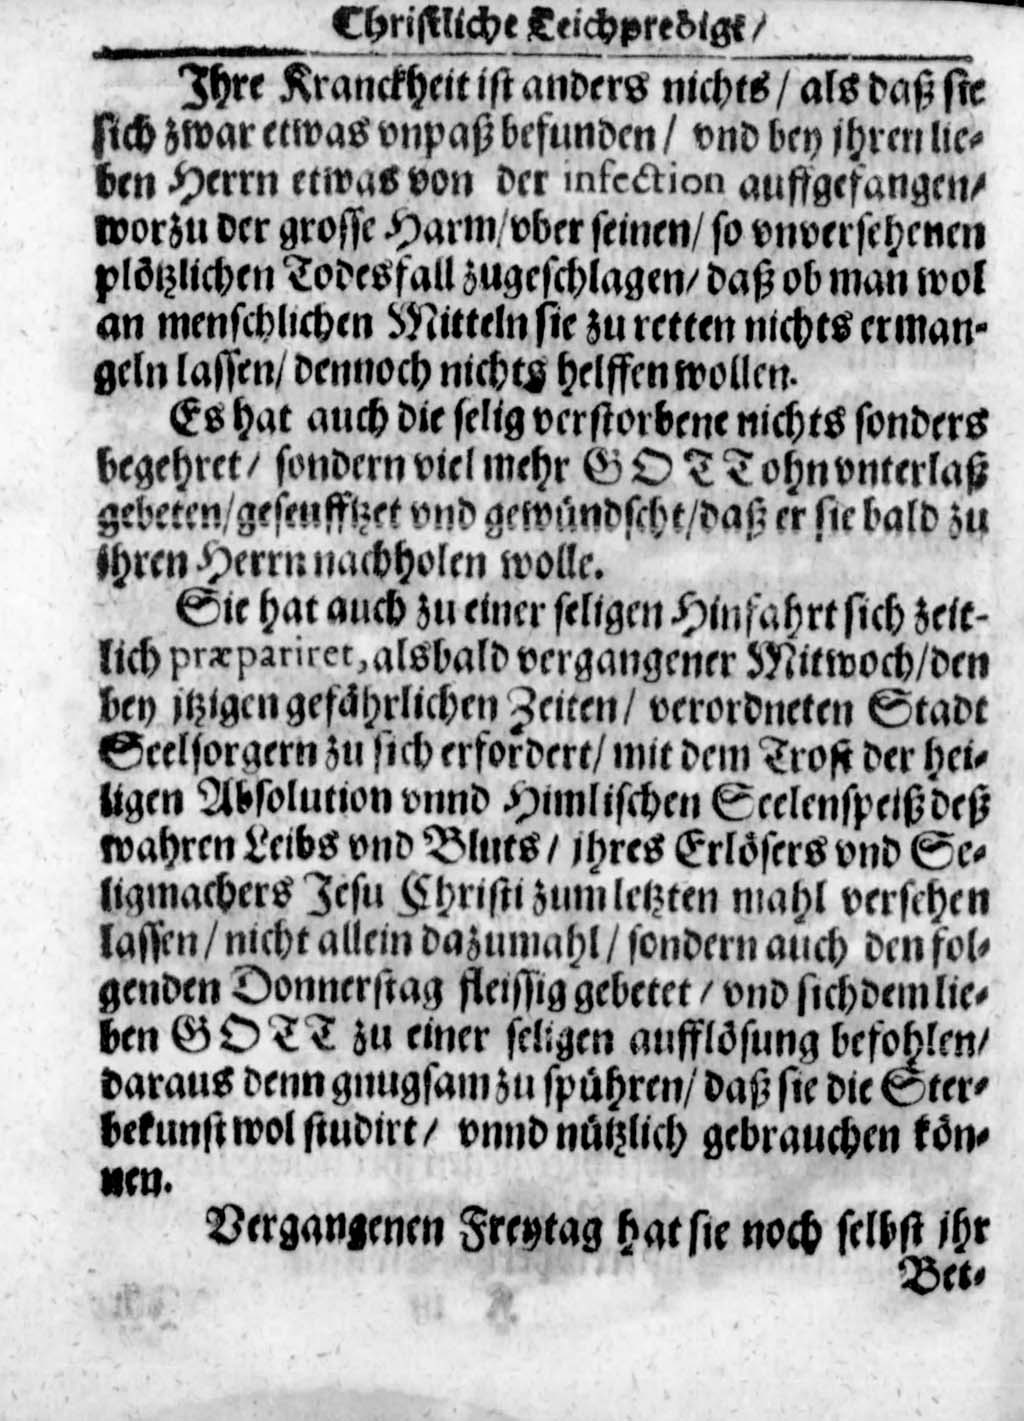 Christliche Leichpredigt/
Ihre Kranckheit ist anders nichts/ als daß sie
sich zwar etwas vnpaß befunden/ vnd bey ihren lie-
ben Herrn etwas von der infection auffgefangen/
worzu der grosse Harm/vber seinen/ so vnversehenen
plötzlichen Todesfall zugeschlagen/ daß ob man wol
an menschlichen Mitteln sie zu retten nichts erman-
geln lassen/ dennoch nichts helffen wollen.
Es hat auch die selig verstorbene nichts sonders
begehret/ sondern viel mehr GOTT ohn vnterlaß
gebeten/geseufftzet vnd gewündscht/daß er sie bald zu
ihren Herrn nachholen wolle.
Sie hat auch zu einer seligen Hinfahrt sich zeit-
lich præpariret, alsbald vergangener Mitwoch/den
bey itzigen gefährlichen Zeiten/ verordneten Stadt
Seelsorgern zu sich erfordert/ mit dem Trost der hei-
ligen Absolution vnnd Himlischen Seelenspeiß deß
wahren Leibs vnd Bluts/ ihres Erlösers vnd Se-
ligmachers Jesu Christi zum letzten mahl versehen
lassen/ nicht allein dazumahl/ sondern auch den fol-
genden Donnerstag fleissig gebetet/ vnd sich dem lie-
ben GOTT zu einer seligen aufflösung befohlen/
daraus denn gnugsam zu spühren/ daß sie die Ster-
bekunst wol studirt/ vnnd nützlich gebrauchen kön-
nen.
Vergangenen Freytag hat sie noch selbst ihr
Bet-